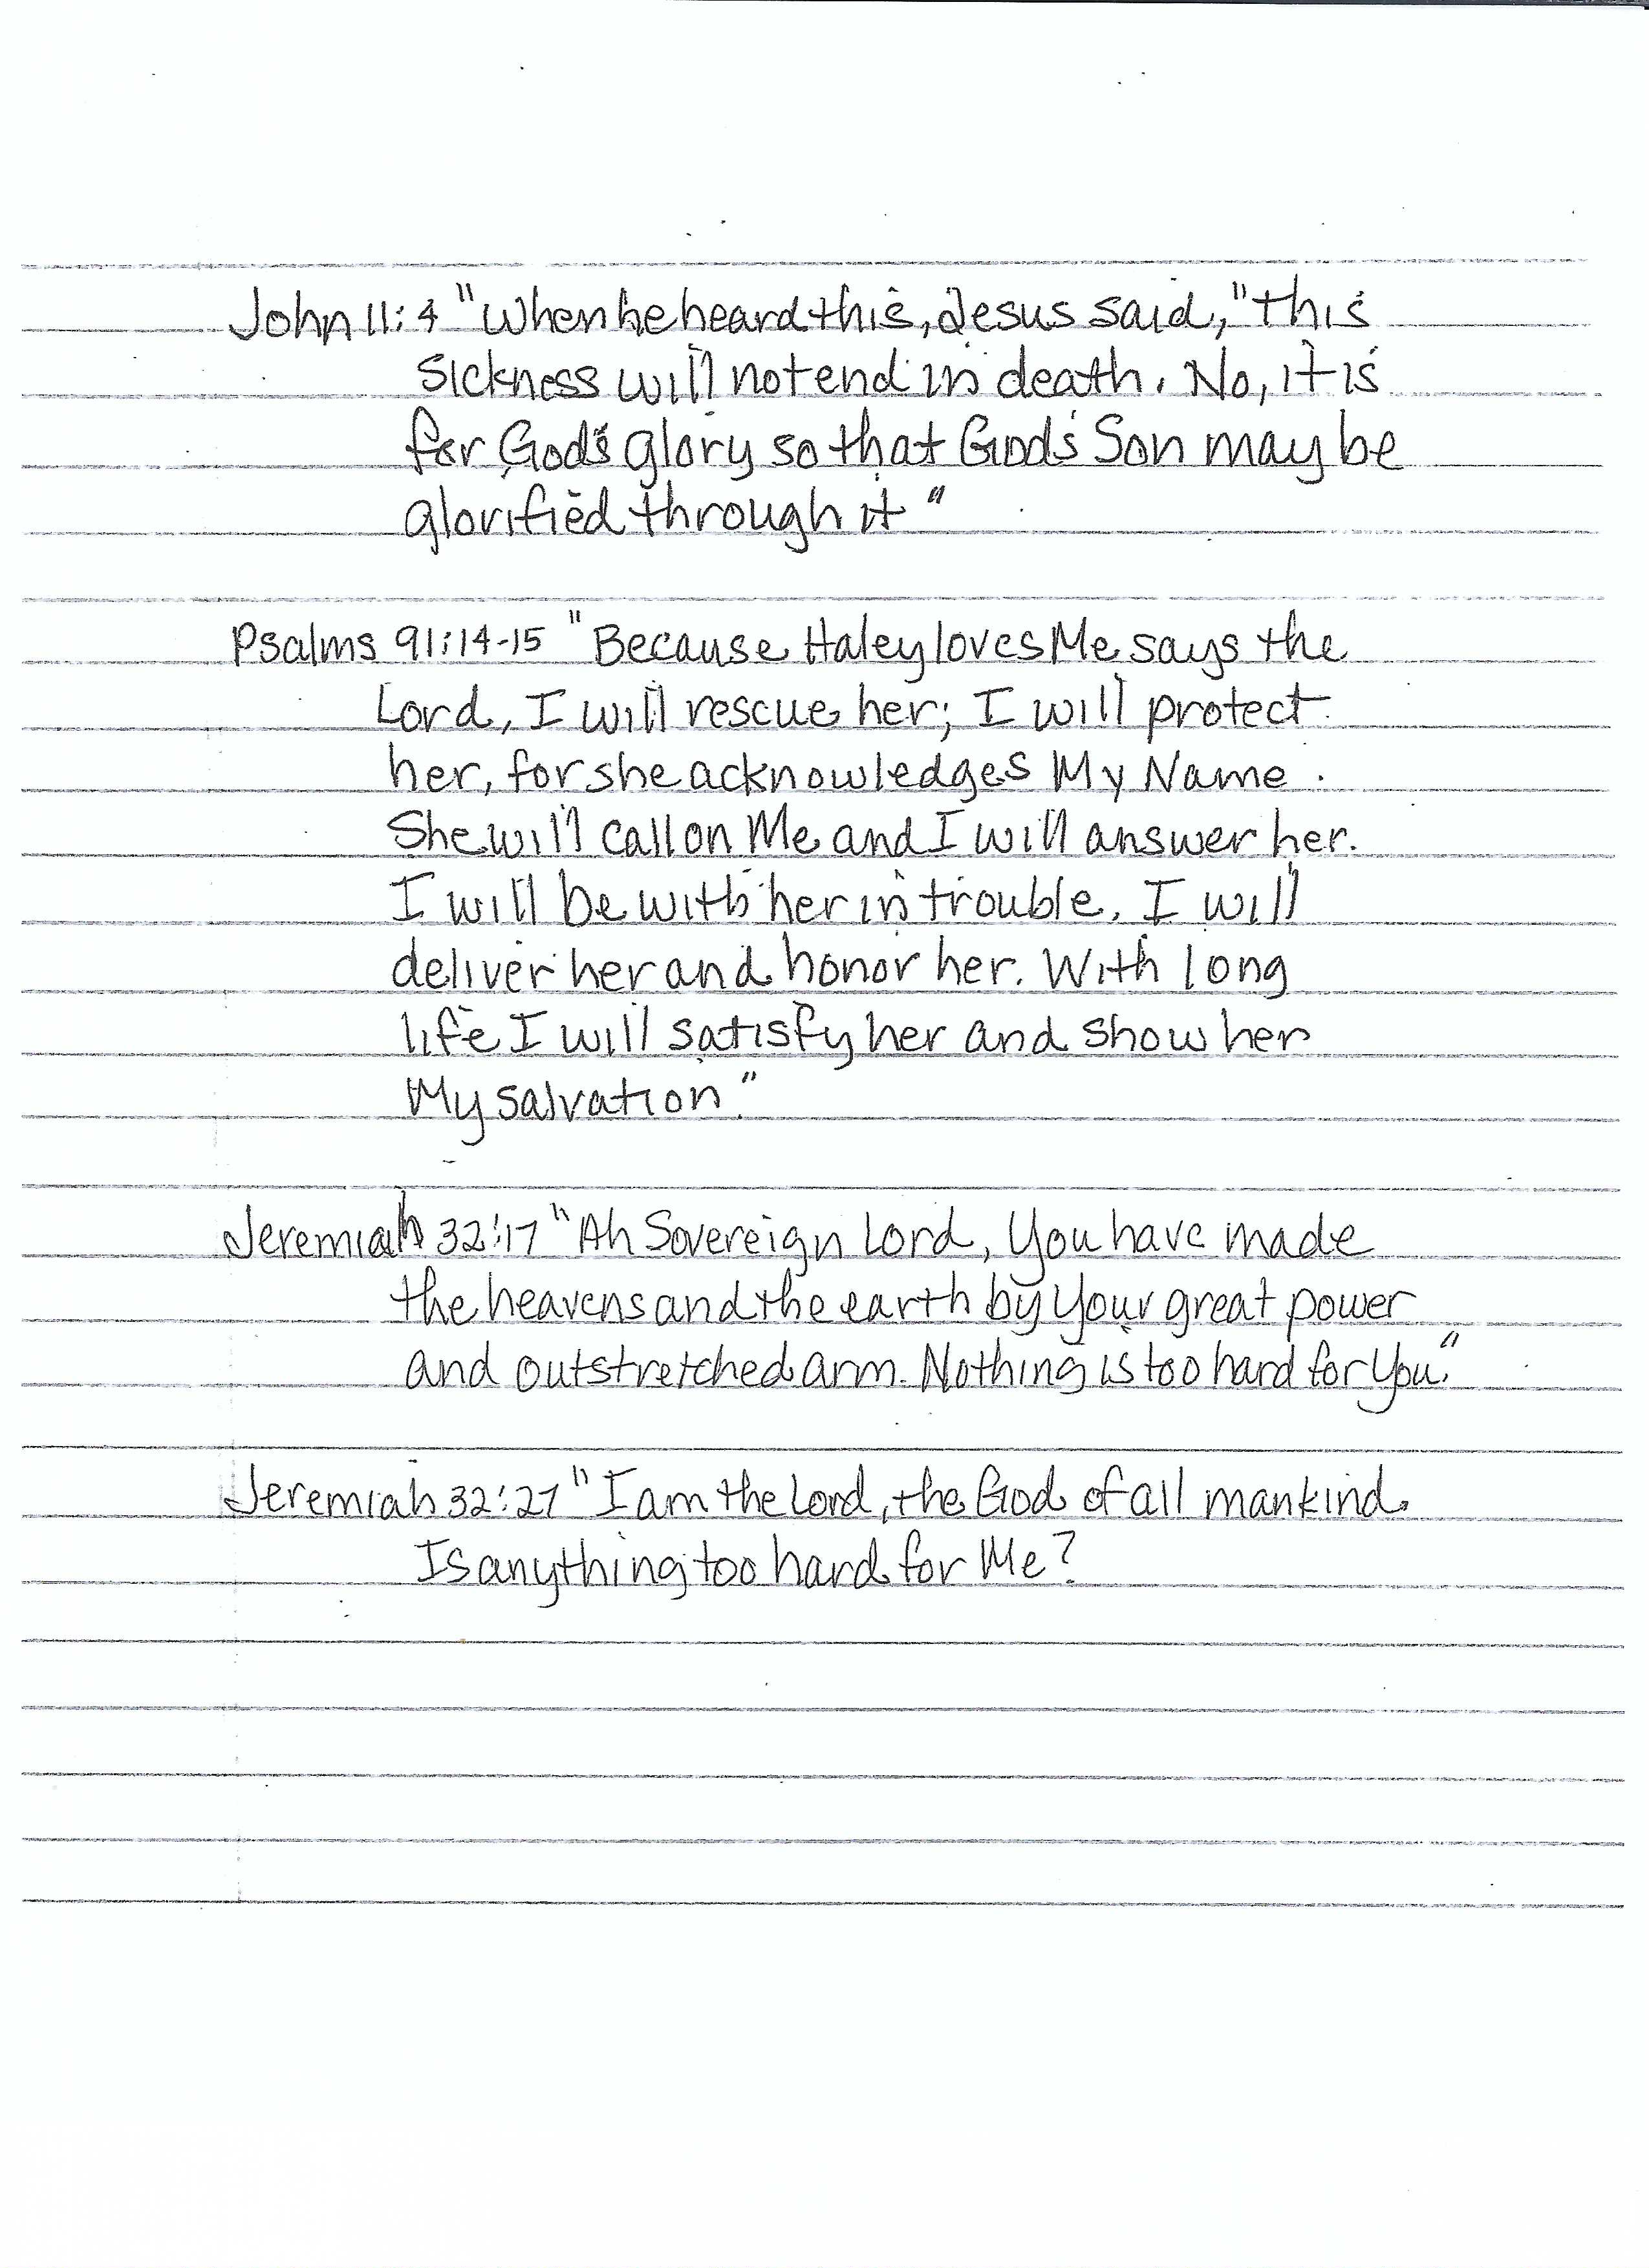 John 11:4 "When he heard this, Jesus said, "this
sickness will not end in death. No, it is
for God's glory so that God's Son may be
glorified through it"
Psalms 91:14-15 "Because Haley loves Me says the
Lord, I will rescue her; I will protect
her, for she acknowledges My Name.
She will call on Me and I will answer her.
I will be with her in trouble, I will
deliver her and honor her. With long
life I will satisfy her and show her
My salvation."
Jeremiah 32:17 "Ah Sovereign Lord, You have made
the heavens and the earth by Your great power
and outstretched arm. Nothing is too hard for You."
Jeremiah 32:27 "I am the Lord, the God of all mankind.
Is anything too hard for Me?